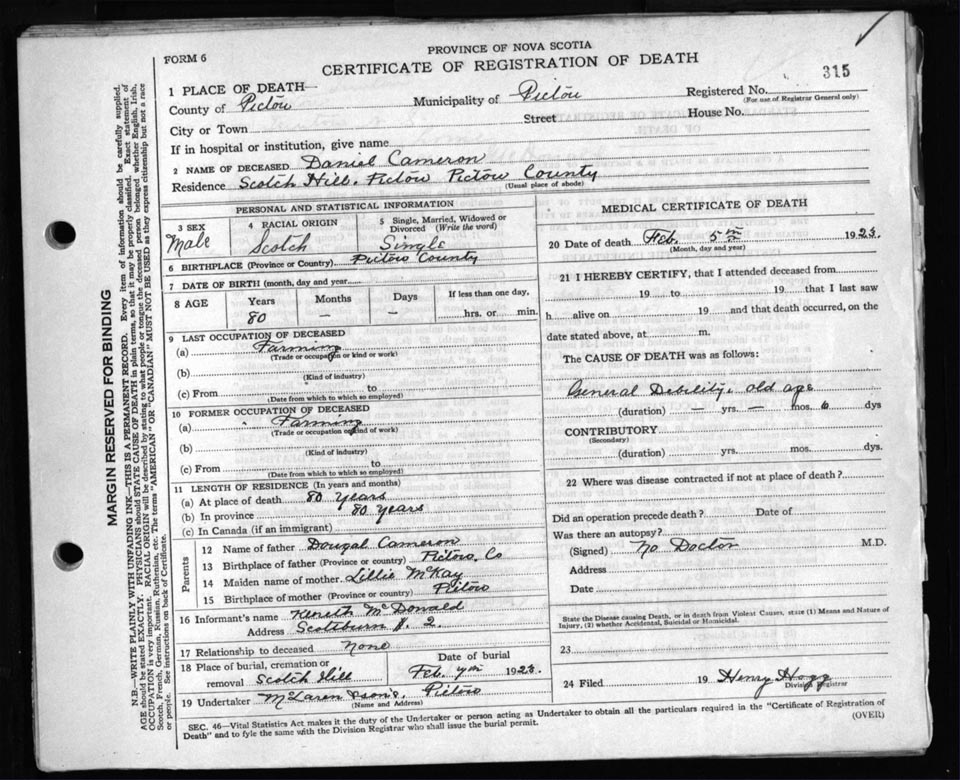 FORM 6
PROVINCE OF NOVA SCOTIA
CERTIFICATE OF REGISTRATION OF DEATH
315
1 PLACE OF DEATH—
County of Pictou Municipality of Pictou Registered No.
(For use of Registrar General only)
City or Town Street House No.
If in hospital or institution, give name
2 NAME OF DECEASED Daniel Cameron
Residence Scotch Hill. Pictou Pictou County
(Usual place of abode)
PERSONAL AND STATISTICAL INFORMATION
3 SEX 4 RACIAL ORIGIN 5 Single, Married, Widowed or Divorced (Write the word)
Male Scotch Single
6 BIRTHPLACE (Province or Country) Pictou County
7 DATE OF BIRTH (month, day and year)
8 AGE Years Months Days If less than one day,
80 — — hrs. or min.
9 LAST OCCUPATION OF DECEASED
(a) Farming
(Trade or occupation or kind or work)
(b)
(Kind of industry)
(c) From to
(Date from which to which so employed)
10 FORMER OCCUPATION OF DECEASED
(a) Farming
(Trade or occupation or kind of work)
(b)
(Kind of industry)
(c) From to
(Date from which to which so employed)
11 LENGTH OF RESIDENCE (In years and months)
(a) At place of death 80 years
(b) In province 80 years
(c) In Canada (if an immigrant)
Parents
12 Name of father Dougal Cameron
13 Birthplace of father (Province or country) Pictou Co
14 Maiden name of mother Lillie McKay
15 Birthplace of mother (Province or country) Pictou
16 Informant's name Keneth McDonald
Address Scotsburn 2.
17 Relationship to deceased None
18 Place of burial, cremation or removal Scotch Hill
Date of burial Feb. 7th 1923
19 Undertaker McLaren & Son's, Pictou
(Name and Address)
MEDICAL CERTIFICATE OF DEATH
20 Date of death Feb. 5th 1923.
(Month, day and year)
21 I HEREBY CERTIFY, that I attended deceased from
19 to 19 that I last saw
h alive on 19 and that death occurred, on the
date stated above, at m.
The CAUSE OF DEATH was as follows:
General Debility. old age
(duration) — yrs. — mos. 6 dys
CONTRIBUTORY
(Secondary)
(duration) yrs. mos. dys.
22 Where was disease contracted if not at place of death?
Did an operation precede death? Date of
Was there an autopsy?
(Signed) No Doctor M.D.
Address
Date
State the Disease causing Death, or in death from Violent Causes, state (1) Means and Nature of
Injury, (2) whether Accidental, Suicidal or Homicidal.
23
24 Filed 19 Henry Hogg
Division Registrar
SEC. 46—Vital Statistics Act makes it the duty of the Undertaker or person acting as Undertaker to obtain all the particulars required in the "Certificate of Registration of
Death" and to fyle the same with the Division Registrar who shall issue the burial permit.
(OVER)
MARGIN RESERVED FOR BINDING
N.B.—WRITE PLAINLY WITH UNFADING INK—THIS IS A PERMANENT RECORD. Every item of information should be carefully supplied.
AGE should be stated EXACTLY. PHYSICIANS should STATE CAUSE OF DEATH in plain terms, so that it may be properly classified. Exact statement of
OCCUPATION is very important. RACIAL ORIGIN will be described by stating to what people or tongue the deceased person belonged whether English, Irish,
Scotch, French, German, Russian, Ruthenian, etc. The terms "AMERICAN" OR "CANADIAN" MUST NOT BE USED as they express citizenship but not a race
or people. See instructions on back of Certificate.